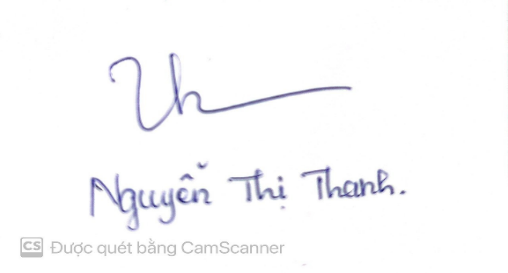 Nguyễn Thị Thanh.
CS Được quét bằng CamScanner